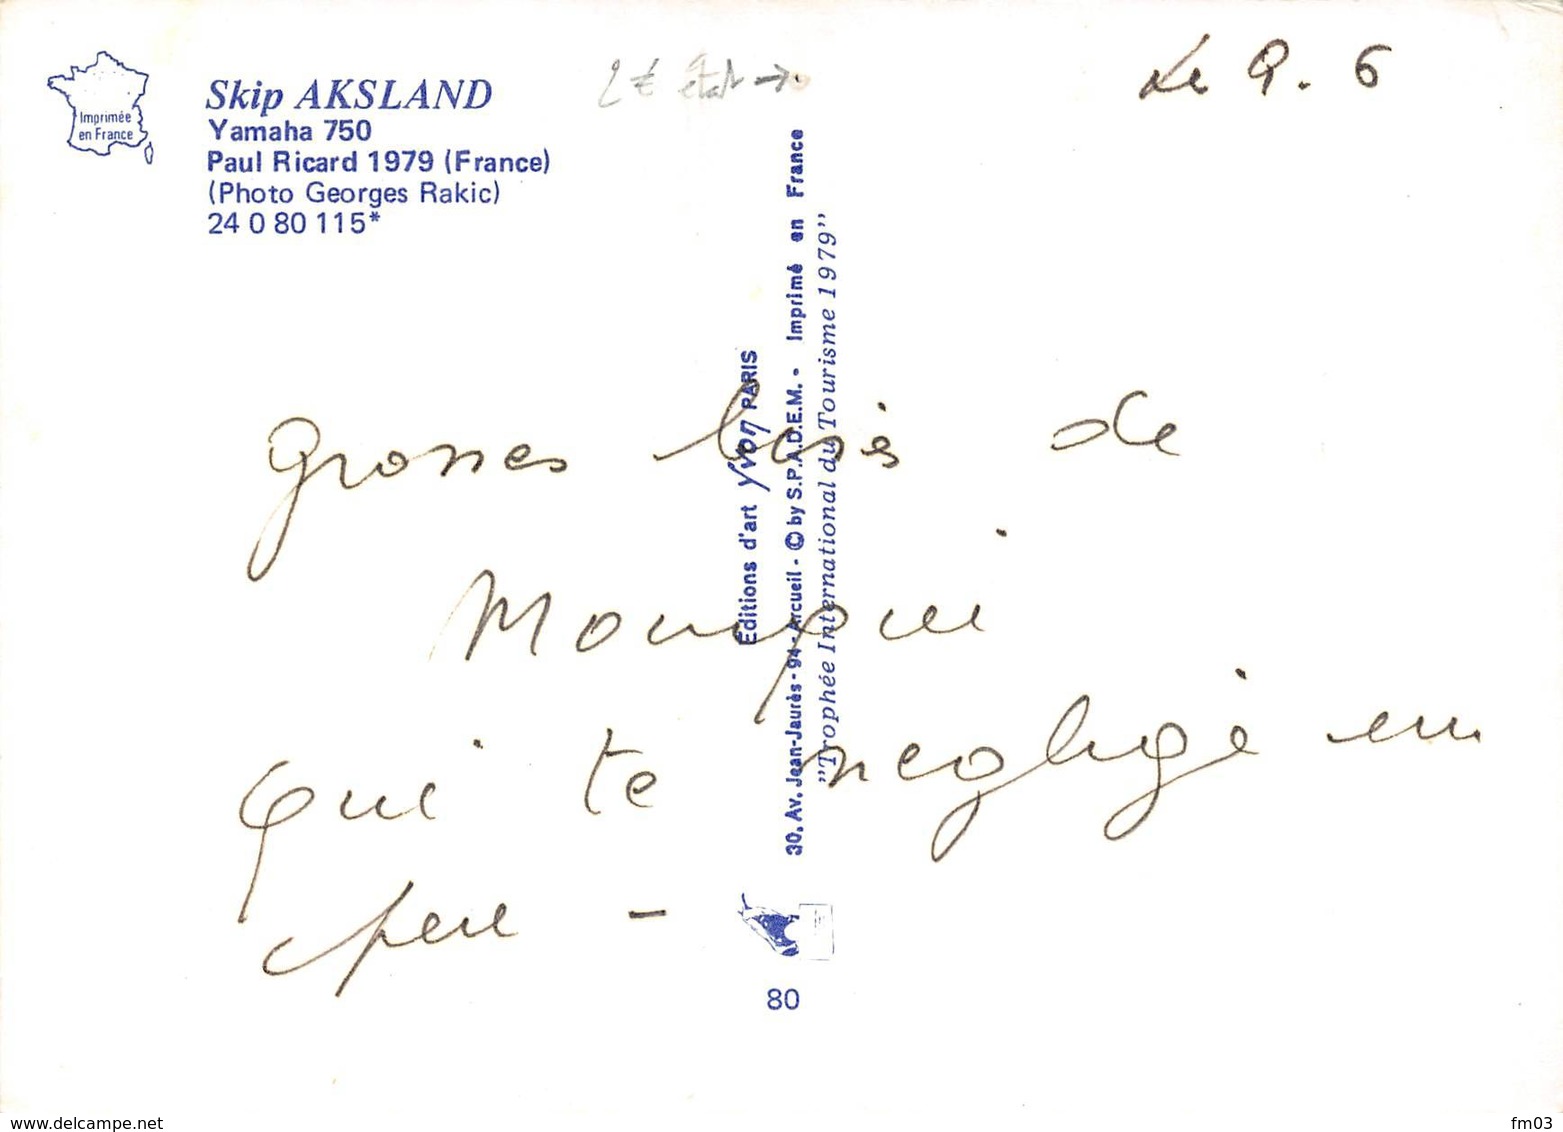 Imprimée
en France
Skip AKSLAND
Yamaha 750
Paul Ricard 1979 (France)
(Photo Georges Rakic)
24 0 80 115*
2 € état →
Le 9. 6
Editions d'art yvon PARIS
30, Av. Jean-Jaurès - 94 - Arcueil - © by S.P.A.D.E.M. - Imprimé en France
"Trophée International du Tourisme 1979"
grosses bises de
qui te neglige un
peu -
80
www.delcampe.net
fm03